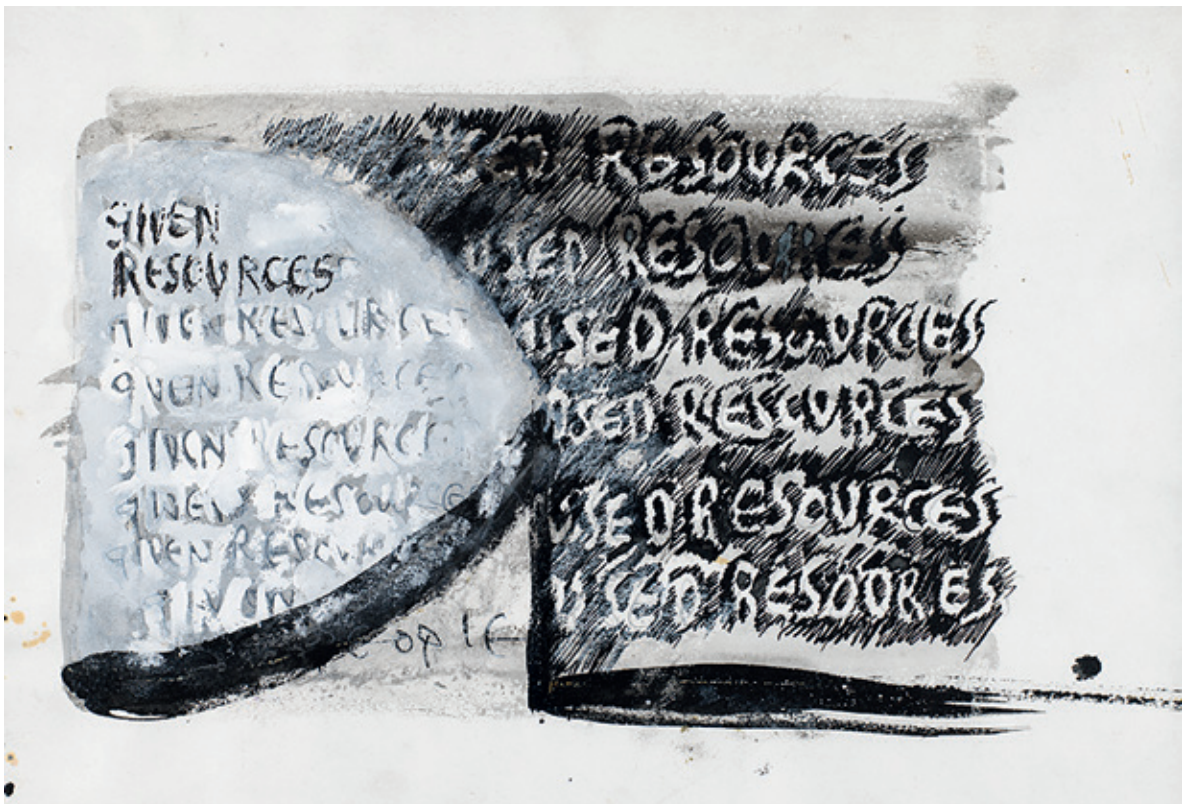 gIVEN
RESOURCES
gIVEN RESOURCES
gIVEN RESOURCES
gIVEN RESOURCE
gIVEN RESOURCE
gIVEN RESOU
gIVEN
USED RESOURCES
USED RESOURES
USED RESOURCES
USED RESOURCES
USED RESOURCES
USED RESOURES